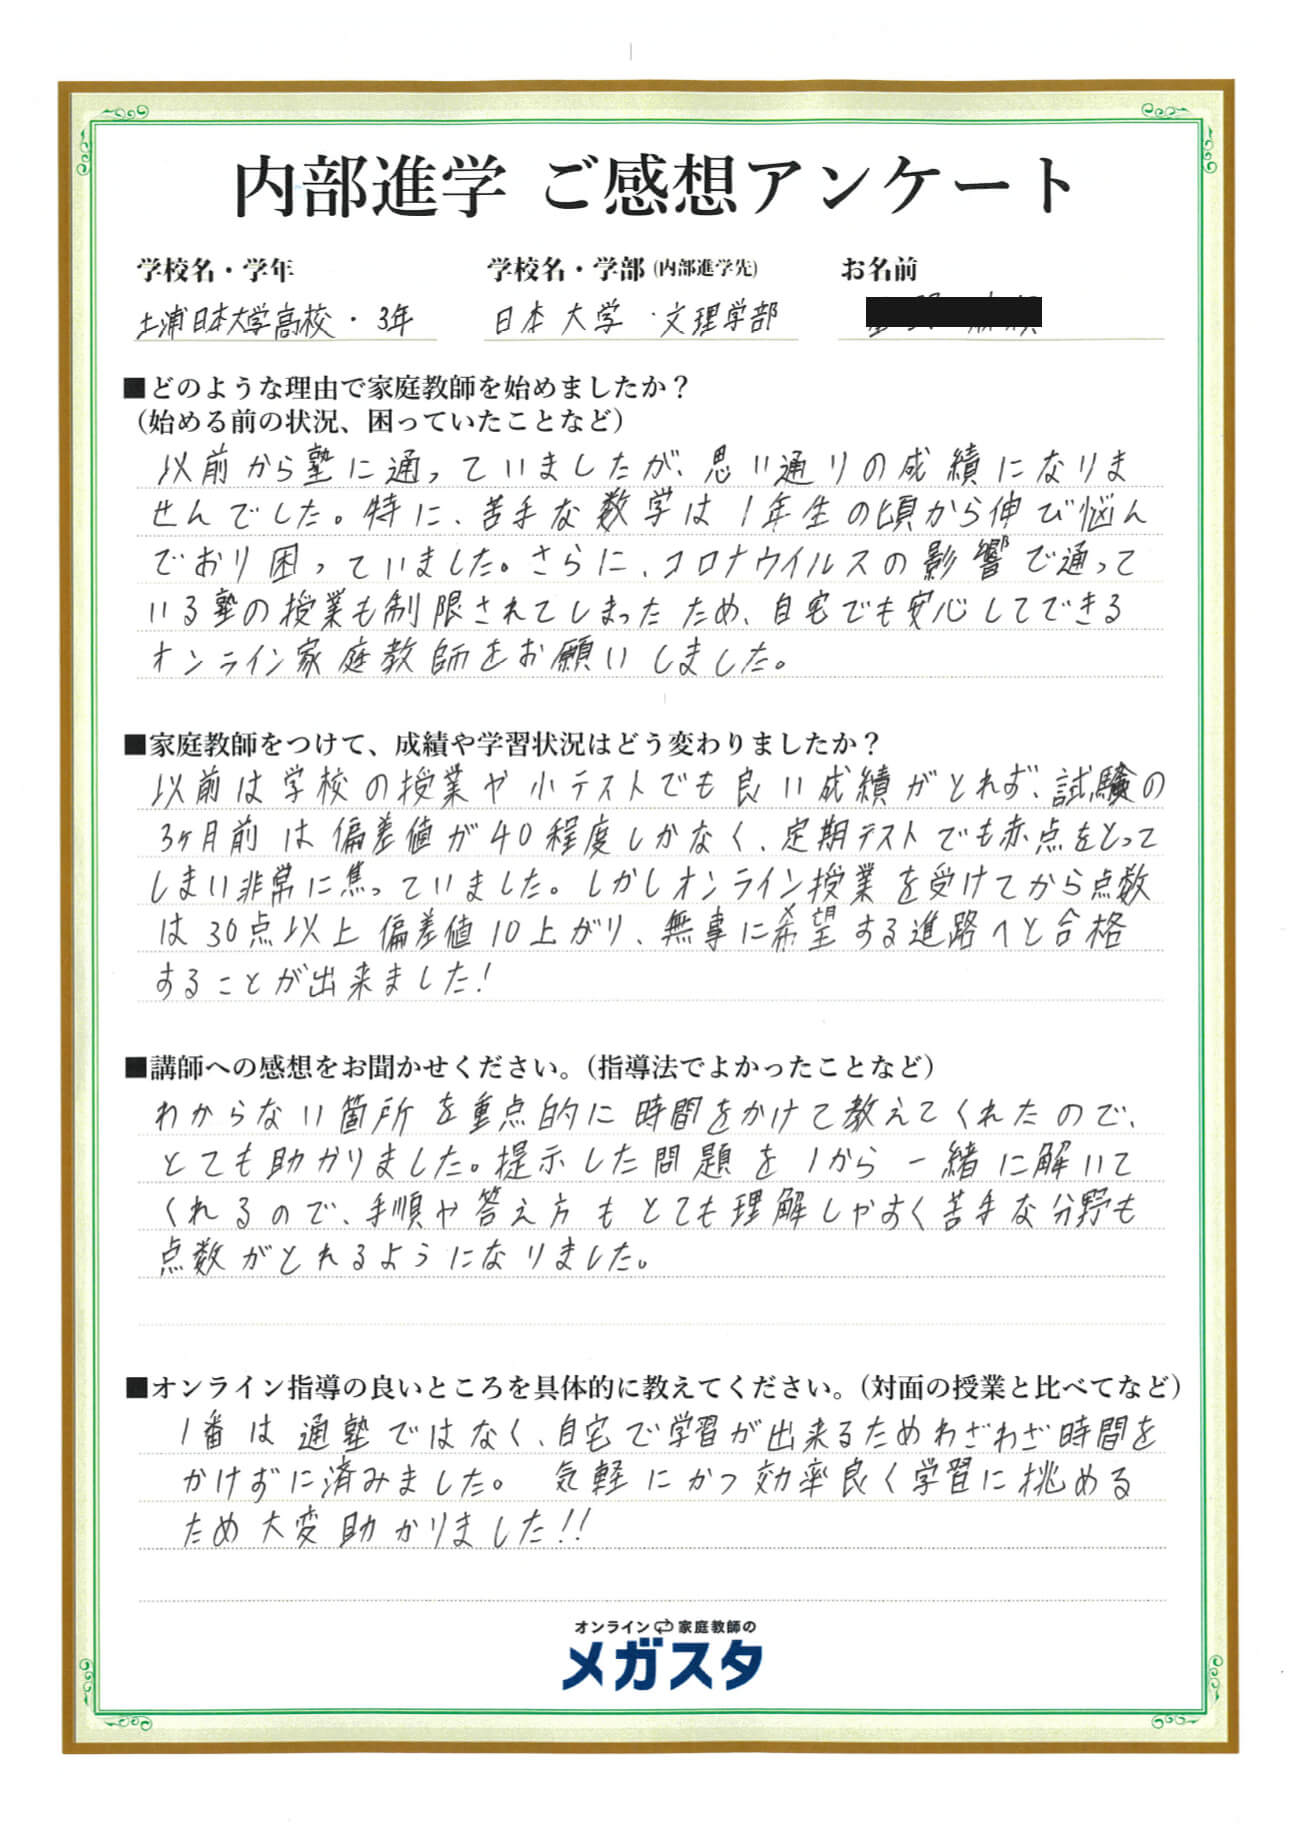 内部進学 ご感想アンケート
学校名・学年 学校名・学部(内部進学先) お名前
土浦日本大学高校・3年 日本大学・文理学部
■どのような理由で家庭教師を始めましたか？
(始める前の状況、困っていたことなど)
以前から塾に通っていましたが、思い通りの成績になりま
せんでした。特に、苦手な数学は1年生の頃から伸び悩ん
でおり困っていました。さらに、コロナウイルスの影響で通って
いる塾の授業も制限されてしまったため、自宅でも安心してできる
オンライン家庭教師をお願いしました。
■家庭教師をつけて、成績や学習状況はどう変わりましたか？
以前は学校の授業や小テストでも良い成績がとれず、試験の
3ヶ月前は偏差値が40程度しかなく、定期テストでも赤点をとって
しまい非常に焦っていました。しかしオンライン授業を受けてから点数
は30点以上偏差値10上がり、無事に希望する進路へと合格
することが出来ました!
■講師への感想をお聞かせください。(指導法でよかったことなど)
わからない箇所を重点的に時間をかけて教えてくれたので、
とても助かりました。提示した問題を1から一緒に解いて
くれるので、手順や答え方もとても理解しやすく苦手な分野も
点数がとれるようになりました。
■オンライン指導の良いところを具体的に教えてください。(対面の授業と比べてなど)
1番は通塾ではなく、自宅で学習が出来るためわざわざ時間を
かけずに済みました。気軽にかつ効率良く学習に挑める
ため大変助かりました!!
オンライン家庭教師の
メガスタ